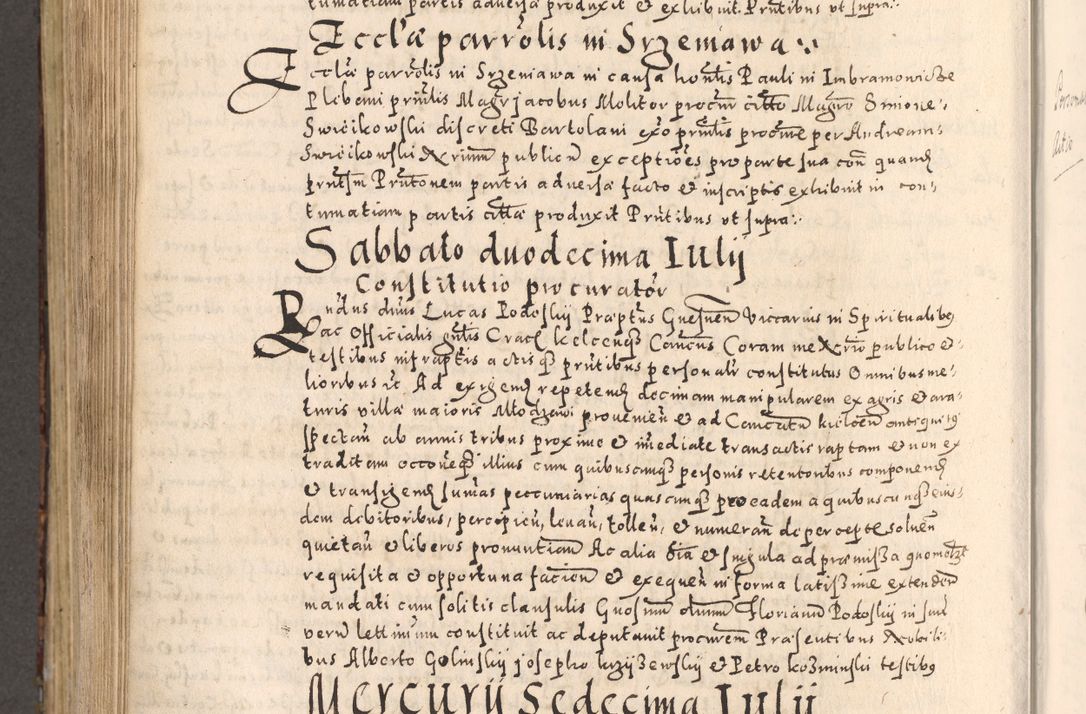 tumatiam partis adversa produxit et exhibuit. Prntibus ut supra.
Eccla parrolis in Srzeniawa
Eccla parrolis in Srzeniawa in causa honlis Pauli in Imbramowicze
Plebani prnlis Magr Jacobus Molitor procur citto Magro Simone
Swiēikowski discreti Bartolani exo prnlis procure per Andream
Swiēikowski Nrium publicū exceptiōes pro parte sua con quandā
prntsm Prntonem partis adversa facto et inscriptis exhibuit in con
tumatiam partis citta produxit Prntibus ut supra
Sabbato duodecima Iulij
Constitutio procurator
Rndus dnus Lucas Podoskij Praeptus Gnesnen Viccarius in Spiritualibus
ac Officialis gnlis Crac kelcensq Cancus Coram me Nrio publico et
testibus infraptis actisq prntibus personalr constitutus Omnibus me
lioribus ic Ad exigend repetend decimam manipularem ex agris et ara
turis villae maioris Młodzawi provenien et ad Cancatu kielcen antiquitus
spectan ab annis tribus proximo et imediate transactis raptam et non ex
traditam occoneq illius cum quibuscumq personis retentoribus componend
et transigend sumas peccuniarias quascunq pro eadem a quibuscunq eius
dem debitoribus, percipien, levan, tollen, et numeran de percepte solven
quietan et liberos pronuntian Ac alia oia et singula ad praemissa quomolzt
requisita et opportuna facien et exequen in forma latissime extenden
mandati cum solitis clausulis Gnosum dnum Florianu Podoskij in sui
veru lettimum constituit ac deputavit procurem Praesentibus Nobili
bus Alberto Golinskij Josepho krzyżewskij et Petro koźminski testibus
Mercurij Sedecima Iulij